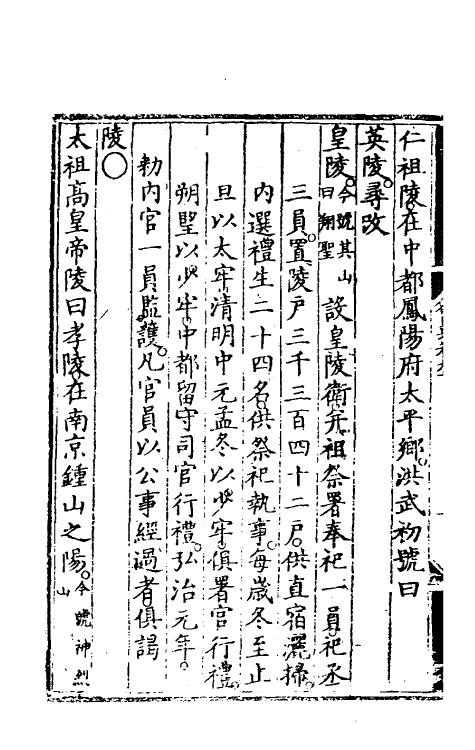 仁祖陵。在中都鳳陽府太平鄉。洪武初號曰
英陵。尋改
皇陵。今號其山曰翔聖設皇陵衛。并祖祭署奉祀一員。祀丞
三員。置陵戶三千三百四十二戶。供直宿灑掃。
内選禮生二十四名。供祭祀執事。每歲冬至止
旦以太牢。清明中元孟冬以少牢。俱署官行禮。
朔望以少牢。中都留守司官行禮。弘治元年。
勑内官一員監護。凡官員以公事經過者俱謁
陵〇
太祖高皇帝陵曰孝陵。在南京鍾山之陽。今號神烈山